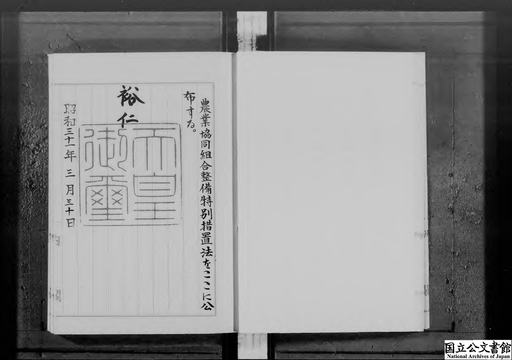 農業協同組合整備特別措置法をここに公
布する。
裕仁
天皇
御璽
昭和三十一年三月三十日
国立公文書館
National Archives of Japan